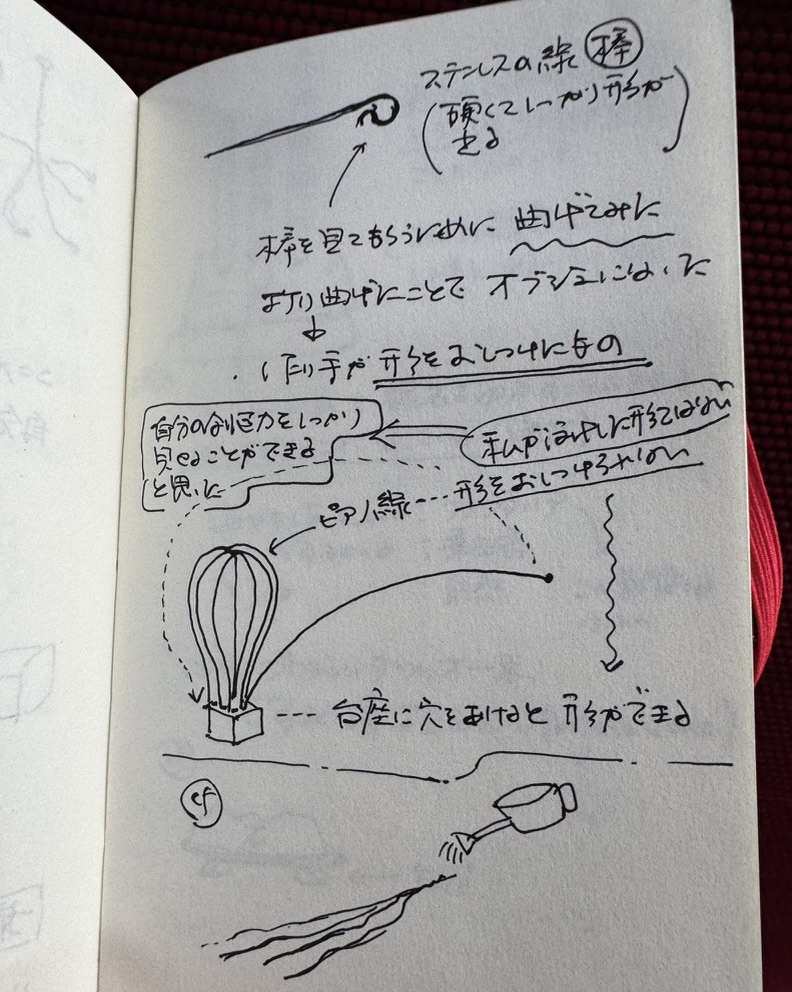 ステンレスの線 棒
(硬くてしっかり形が
できる)
棒を見てもらうために 曲げてみた
折り曲げたことで オブジェになった
・作り手が 形をおしつけたもの
自分の創造力をしっかり
見せることができる
と思った
私が決めた形ではない
ピアノ線 --- 形をおしつけられない
--- 台座に穴をあけると 形ができる
cf